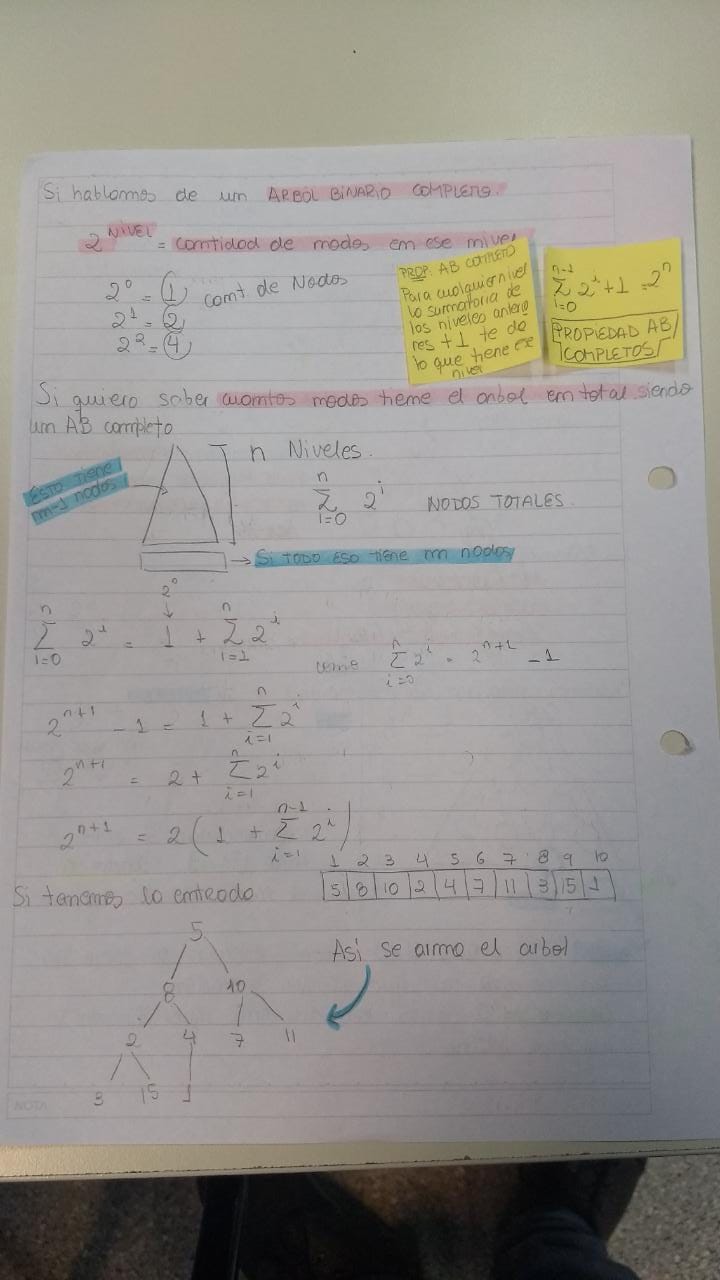 Si hablamos de un ARBOL BINARIO COMPLETO.
2^NIVEL = cantidad de nodos em ese nivel
2^0 = 1 cant de Nodos
2^1 = 2
2^2 = 4
PROP. AB COMPLETO
Para cualquier nivel
la sumatoria de
los niveles anterio
res +1 te da
lo que tiene ese
nivel
n-1
Σ 2^i + 1 = 2^n
i=0
PROPIEDAD AB
COMPLETOS
Si quiero saber cuantos nodos tiene el arbol em total siendo
um AB completo
n Niveles.
ESTO TIENE
m-1 nodos
n
Σ 2^i NODOS TOTALES.
i=0
Si TODO ESO tiene m nodos
2^0
n n
Σ 2^i = 1 + Σ 2^i
i=0 i=1
serie
n
Σ 2^i = 2^n+1 - 1
i=0
n
2^n+1 - 1 = 1 + Σ 2^i
i=1
n
2^n+1 = 2 + Σ 2^i
i=1
n-1
2^n+1 = 2 ( 1 + Σ 2^i )
i=1
1 2 3 4 5 6 7 8 9 10
Si tenemos
5 8 10 2 4 7 11 3 15 1
5
Asi se arma el arbol
8 10
2 4 7 11
3 15 1
NOTA